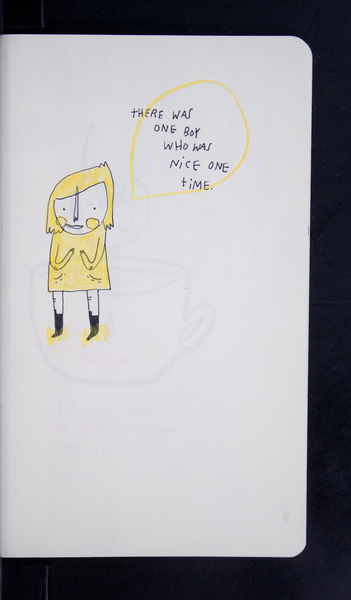 THERE WAS
ONE BOY
WHO WAS
NiCE ONE
tiME.